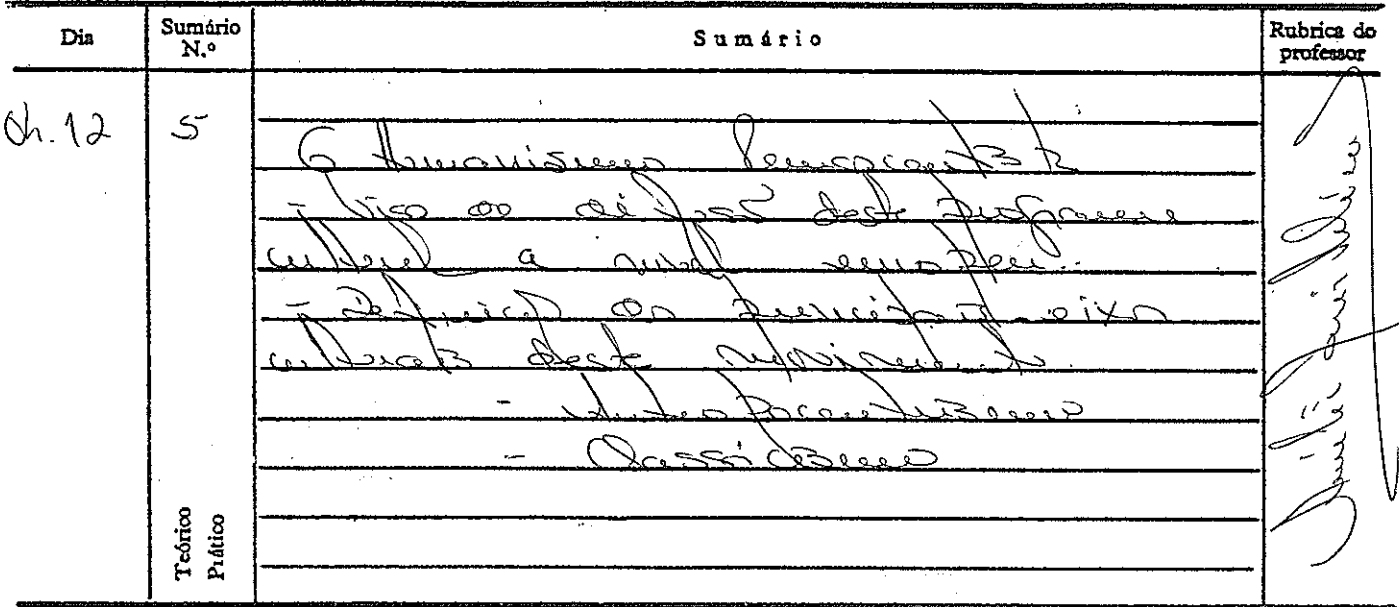 Dia
Sumário N.º
Sumário
Rubrica do professor
12
5
O Humanismo Renascentista
- deste programa
cultural a nível europeu.
- Definição os principais eixos
culturais deste movimento.
- Antropocentrismo
- Classicismo
Teórico
Prático